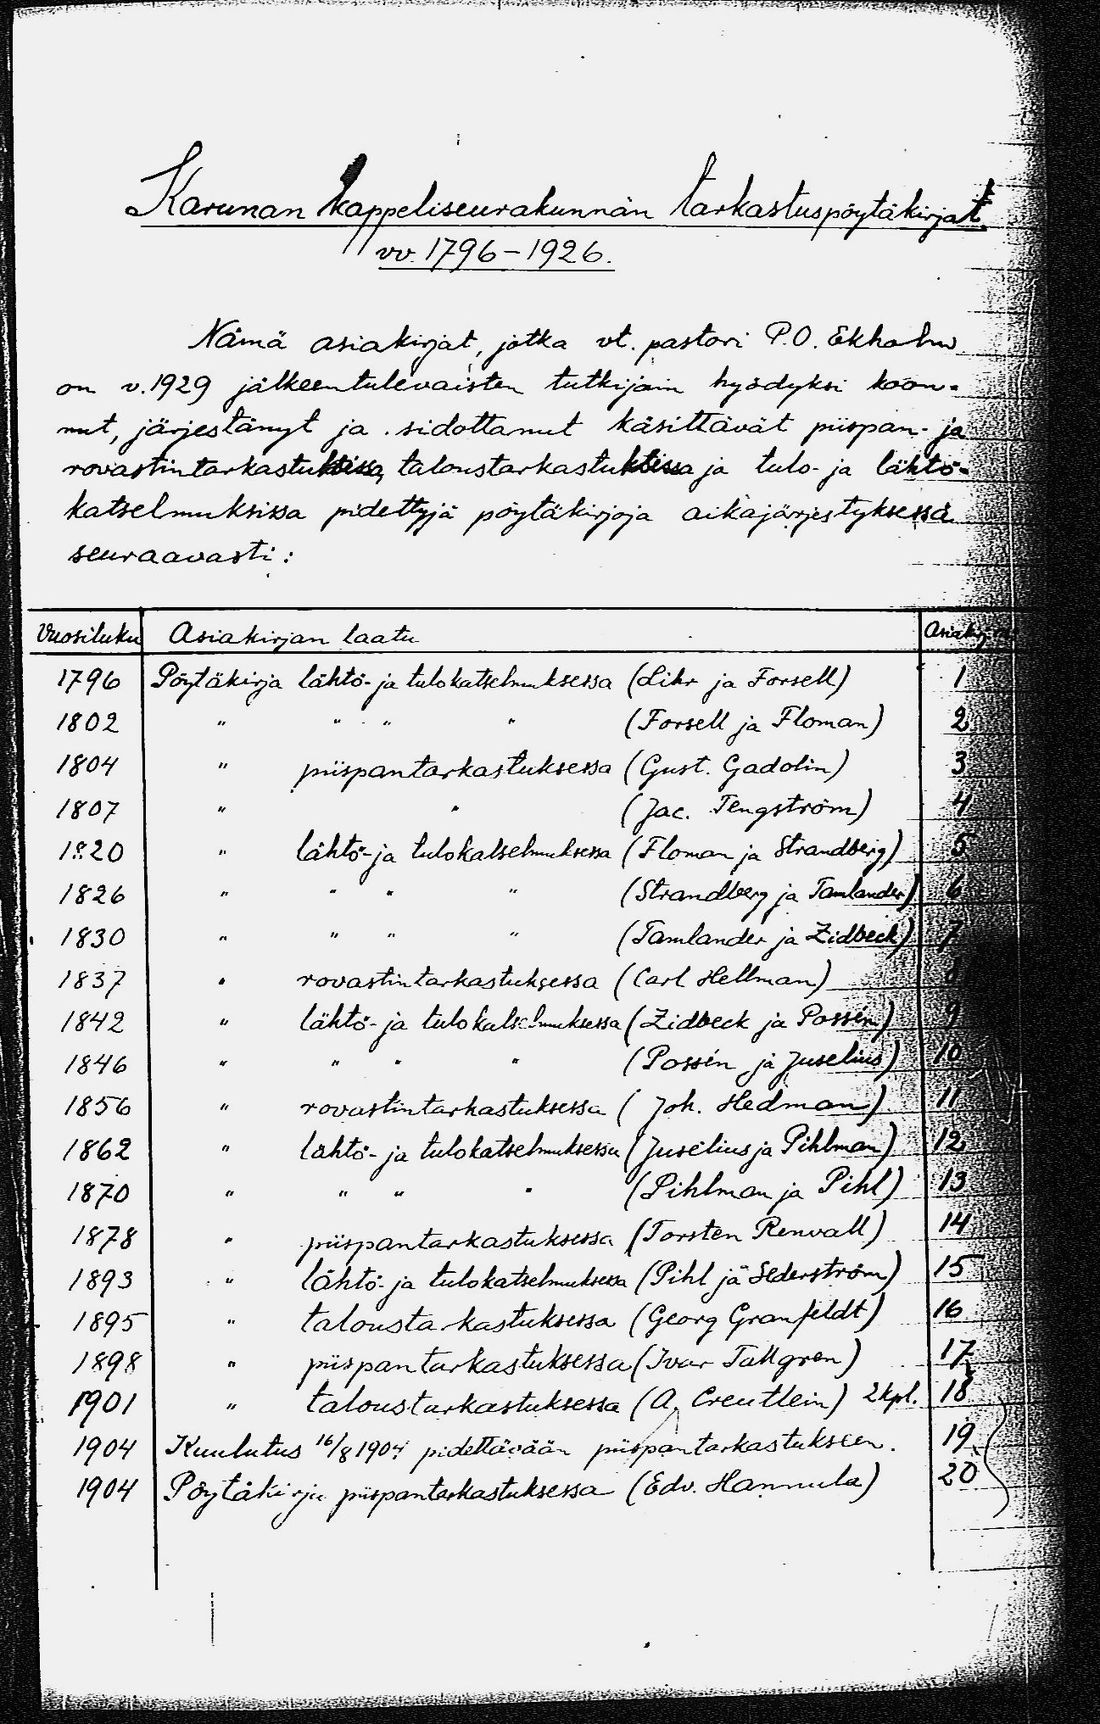 Karunan kappeliseurakunnan tarkastuspöytäkirjat
vv. 1796-1926.
Nämä asiakirjat, jotka vt. pastori P.O. Ekholm
on v.1929 jälkeentulevaisten tutkijain hyödyksi koon-
nut, järjestänyt ja sidottanut käsittävät piispan- ja
rovastintarkastuksissa, taloustarkastuksissa ja tulo- ja lähtö-
katselmuksissa pidettyjä pöytäkirjoja aikajärjestyksessä
seuraavasti:
Vuosiluku Asiakirjan laatu
1796 Pöytäkirja lähtö- ja tulokatselmuksessa (Lihr ja Forsell) 1
1802 " " " " (Forsell ja Floman) 2
1804 " piispantarkastuksessa (Gust. Gadolin) 3
1807 " " (Jac. Tengström) 4
1820 " lähtö- ja tulokatselmuksessa (Floman ja Strandberg) 5
1826 " " " " (Strandberg ja Tamlander) 6
1830 " " " " (Tamlander ja Zidbeck) 7
1837 " rovastintarkastuksessa (Carl Hellman) 8
1842 " lähtö- ja tulokatselmuksessa (Zidbeck ja Possén) 9
1846 " " " " (Possén ja Juselius) 10
1856 " rovastintarkastuksessa (Joh. Hedman) 11
1862 " lähtö- ja tulokatselmuksessa (Juselius ja Pihlman) 12
1870 " " " " (Pihlman ja Pihl) 13
1878 " piispantarkastuksessa (Torsten Renvall) 14
1893 " lähtö- ja tulokatselmuksessa (Pihl ja Sederström) 15
1895 " taloustarkastuksessa (Georg Granfeldt) 16
1898 " piispantarkastuksessa (Ivar Tallgren) 17
1901 " taloustarkastuksessa (A. Creutlein) 2 kpl. 18
1904 Kuulutus 16/8 1904 pidettävään piispantarkastukseen. 19
1904 Pöytäkirja piispantarkastuksessa (Edv. Hannula) 20